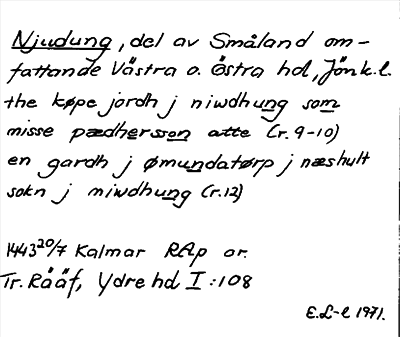 Njudung, del av Småland om-
fattande Västra o. Östra hd, Jönk.l.
the køpe jordh j niwdhung som
misse pædhersson atte (r. 9-10)
en gardh j ømundatørp j næshult
sokn j miwdhung (r.12)
1443 20/7 Kalmar RAp or.
Tr. Rååf, Ydre hd I :108
E.L-l 1971.